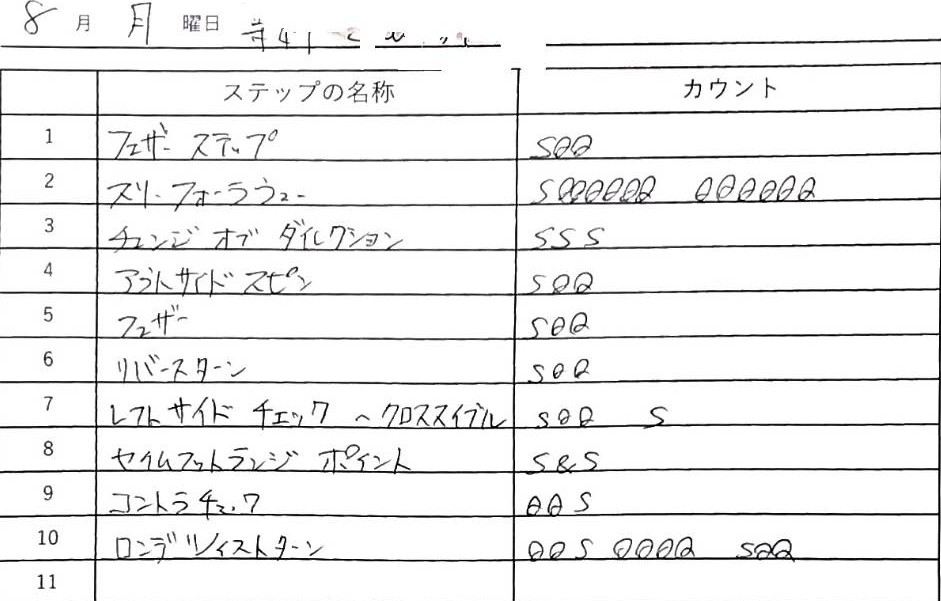 8 月 月 曜日
ステップの名称 カウント
1 フェザーステップ SQQ
2 スリーフォーラウェー SQQQQQQ QQQQQQ
3 チェンジ オブ ダイレクション SSS
4 アウトサイドスピン SQQ
5 フェザー SQQ
6 リバースターン SQQ
7 レフトサイド チェック へ クロススイブル SQQ S
8 セイムフットランジ ポイント S&S
9 コントラチェック QQS
10 ロンデツイストターン QQS QQQQ SQQ
11